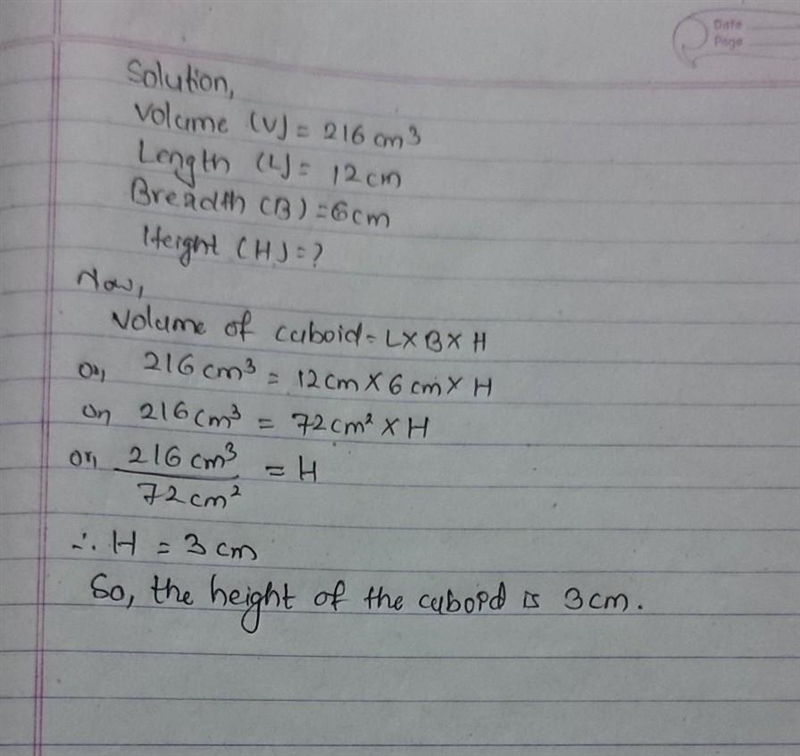 Date
Page
Solution,
Volume (V) = 216 cm³
Length (L) = 12 cm
Breadth (B) = 6 cm
Height (H) = ?
Now,
Volume of cuboid = L × B × H
or, 216 cm³ = 12 cm × 6 cm × H
or 216 cm³ = 72 cm² × H
or, 216 cm³ / 72 cm² = H
∴ H = 3 cm
So, the height of the cuboid is 3 cm.